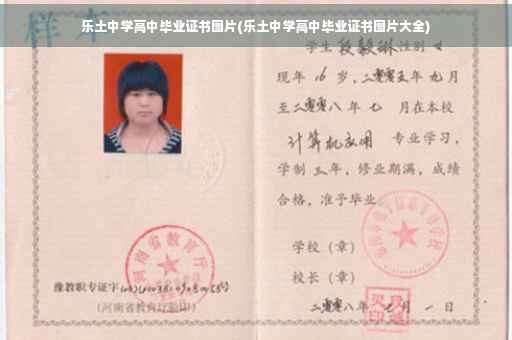 乐土中学高中毕业证书图片(乐土中学高中毕业证书图片大全)
样本
学生 段毅琳 性别 女
现年 16 岁,二零零五年 九月
至二零零八年 七 月在本校
计算机应用 专业学习,
学制 三年,修业期满,成绩
合格,准予毕业
学校(章)
校长(章)
二零零八年 七 月 一 日
河南省教育厅
豫教职专证字
(河南省教育厅验印)